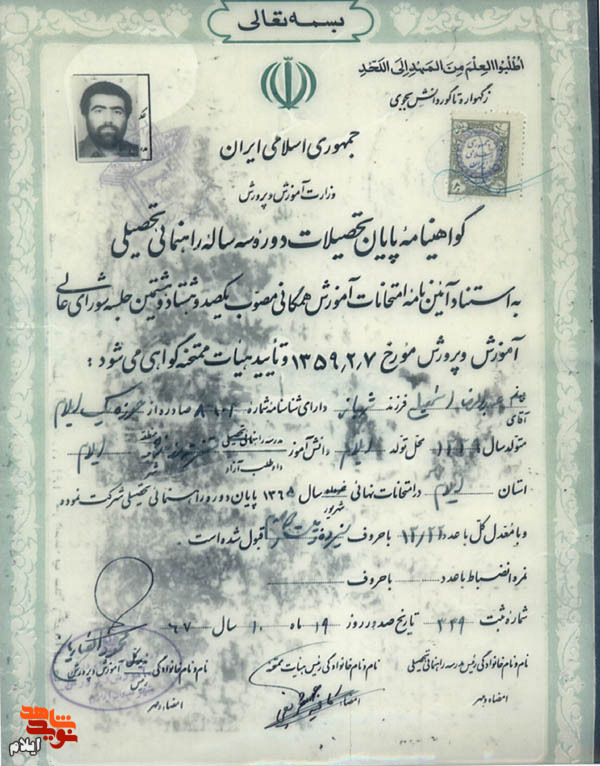 بسمه تعالی
اطلبوا العلم من المهد الی اللحد
زگهواره تا گور دانش بجوی
جمهوری اسلامی ایران
وزارت آموزش و پرورش
گواهینامه پایان تحصیلات دوره سه ساله راهنمائی تحصیلی
به استناد آئین نامه امتحانات آموزش همگانی مصوب یکصد و هشتاد و هشتمین جلسه شورای عالی
آموزش و پرورش مورخ ۱۳۵۹٫۲٫۷ و تأیید هیات ممتحنه گواهی می شود:
آقای عبدالرضا فرزند دارای شناسنامه شماره صادره از ایلام
متولد سال محل تولد ایلام دانش آموز مدرسه راهنمائی تحصیلی ایلام
داوطلب آزاد شهر
استان ایلام در امتحانات نهائی شهریور سال ۱۳۶۵ پایان دوره راهنمائی تحصیلی شرکت نموده
و با معدل کل با عدد با حروف قبول شده است.
نمره انضباط با عدد با حروف
شماره ثبت ۲۴۹ تاریخ صدور روز ۱۹ ماه ۱۰ سال ۶۷
نام و نام خانوادگی رئیس مدرسه راهنمائی تحصیلی
امضاء و مهر
نام و نام خانوادگی رئیس هیات ممتحنه
امضاء
نام و نام خانوادگی
رئیس آموزش و پرورش
امضاء و مهر
نوید شاهد
ایلام